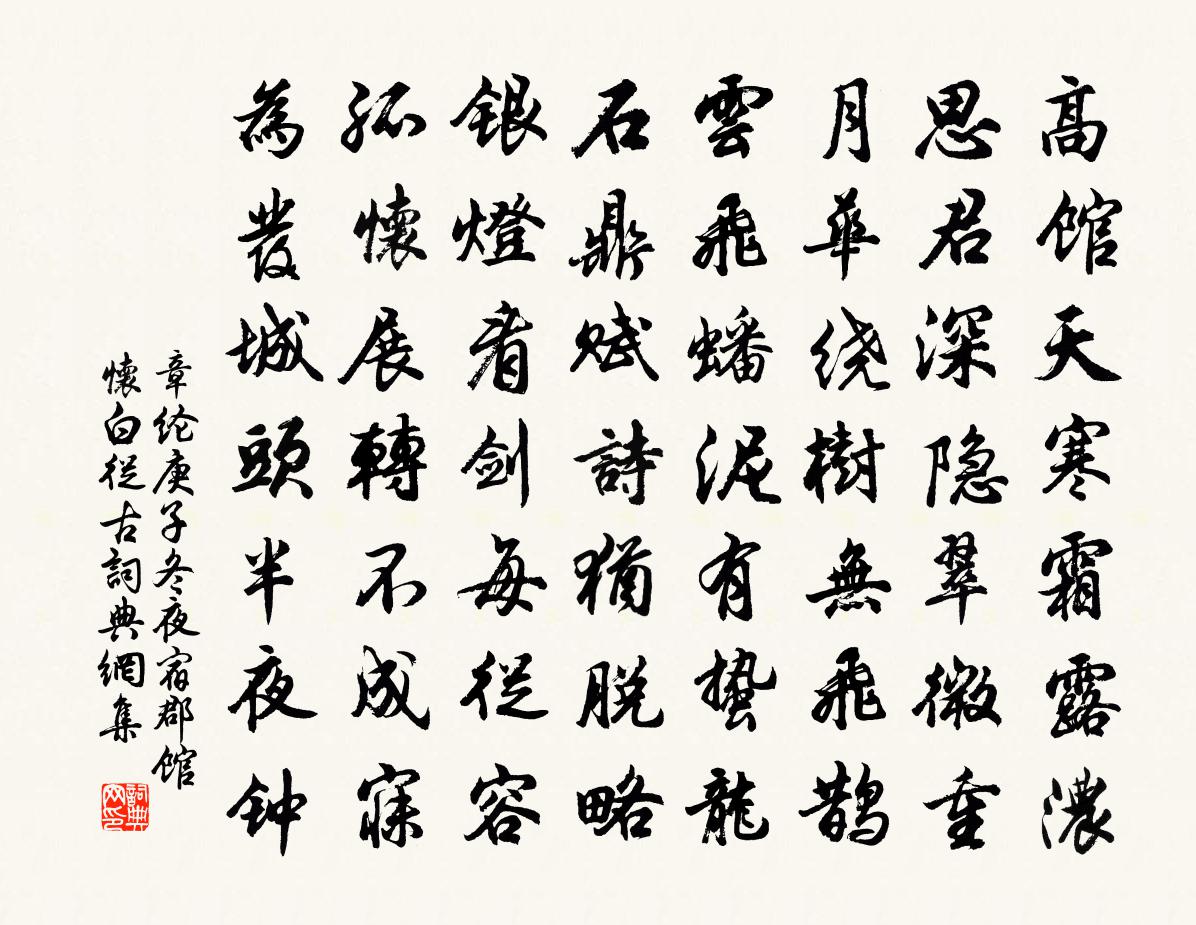 高馆天寒霜露濃
思君深隐翠微重
月華绕樹無飛鹊
雲飛蟠泥有蛰龍
石鼎赋詩猶脱略
銀燈看剑每從容
孤懷展轉不成寐
為發城頭半夜钟
章纶庚子冬夜宿郡馆
懷白從古詞典網集
詞典网印